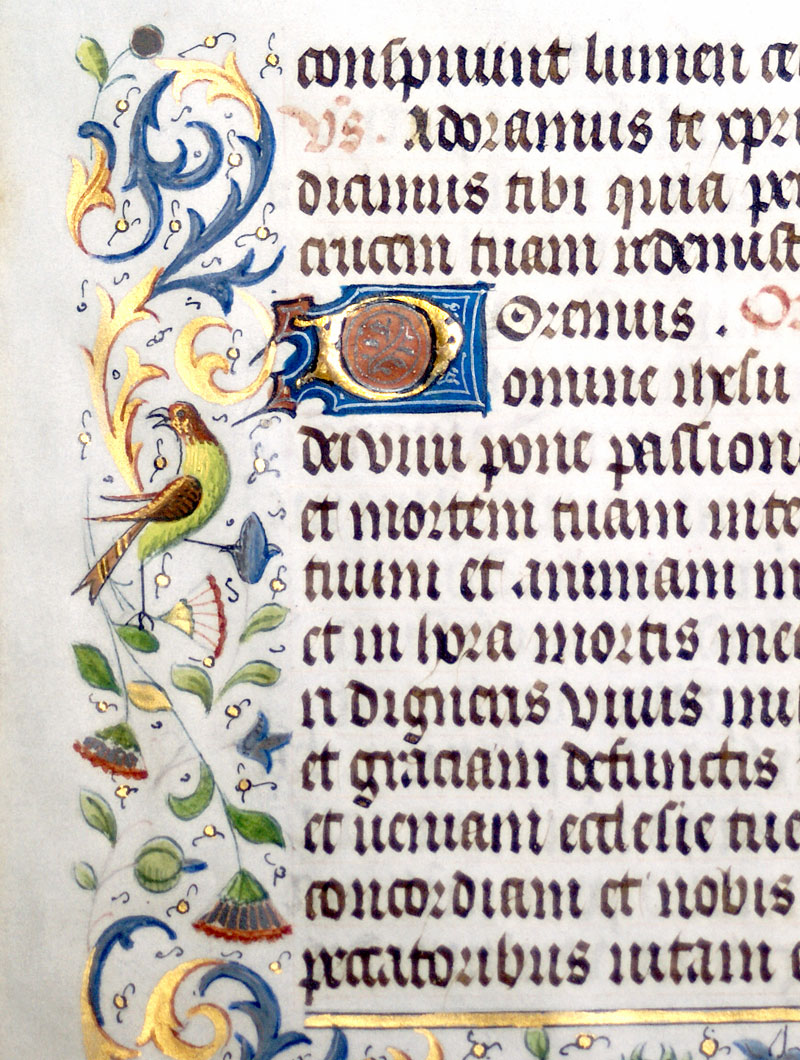 conspiunt lumen ce
Vs. Adoramus te xpri
dicimus tibi quia per
crucem tuam redemist
Oremus. Or
Domine ihesu
dei viui pone passion
et mortem tuam inte
tuum et animam m
et in hora mortis mee
ri digneris viuis mi
et graciam defunctis
et ueniam ecclesie tue
concordiam et nobis
peccatoribus uitam e